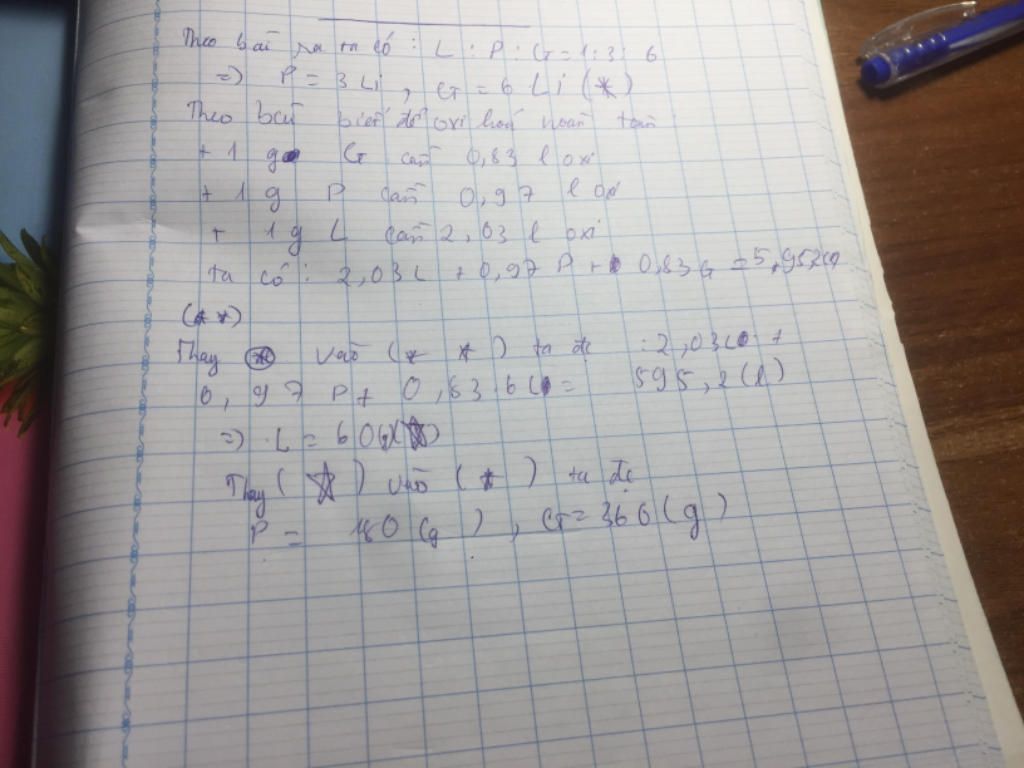 Theo bài ra ta có : L : P : G = 1 : 3 : 6
=> P = 3 Li , G = 6 Li (*)
Theo bài biết để oxi hoá hoàn toàn
+ 1 g G cần 0,83 l oxi
+ 1 g P cần 0,97 l oxi
+ 1 g L cần 2,03 l oxi
ta có : 2,03L + 0,97 P + 0,83G =
(**)
Thay (*) vào (**) ta đc : 2,03L +
0,97 P + 0,83.6L = 595,2 (l)
=> L = 60(g)(☆)
Thay (☆) vào (*) ta đc
P = 180 (g) , G = 360 (g)